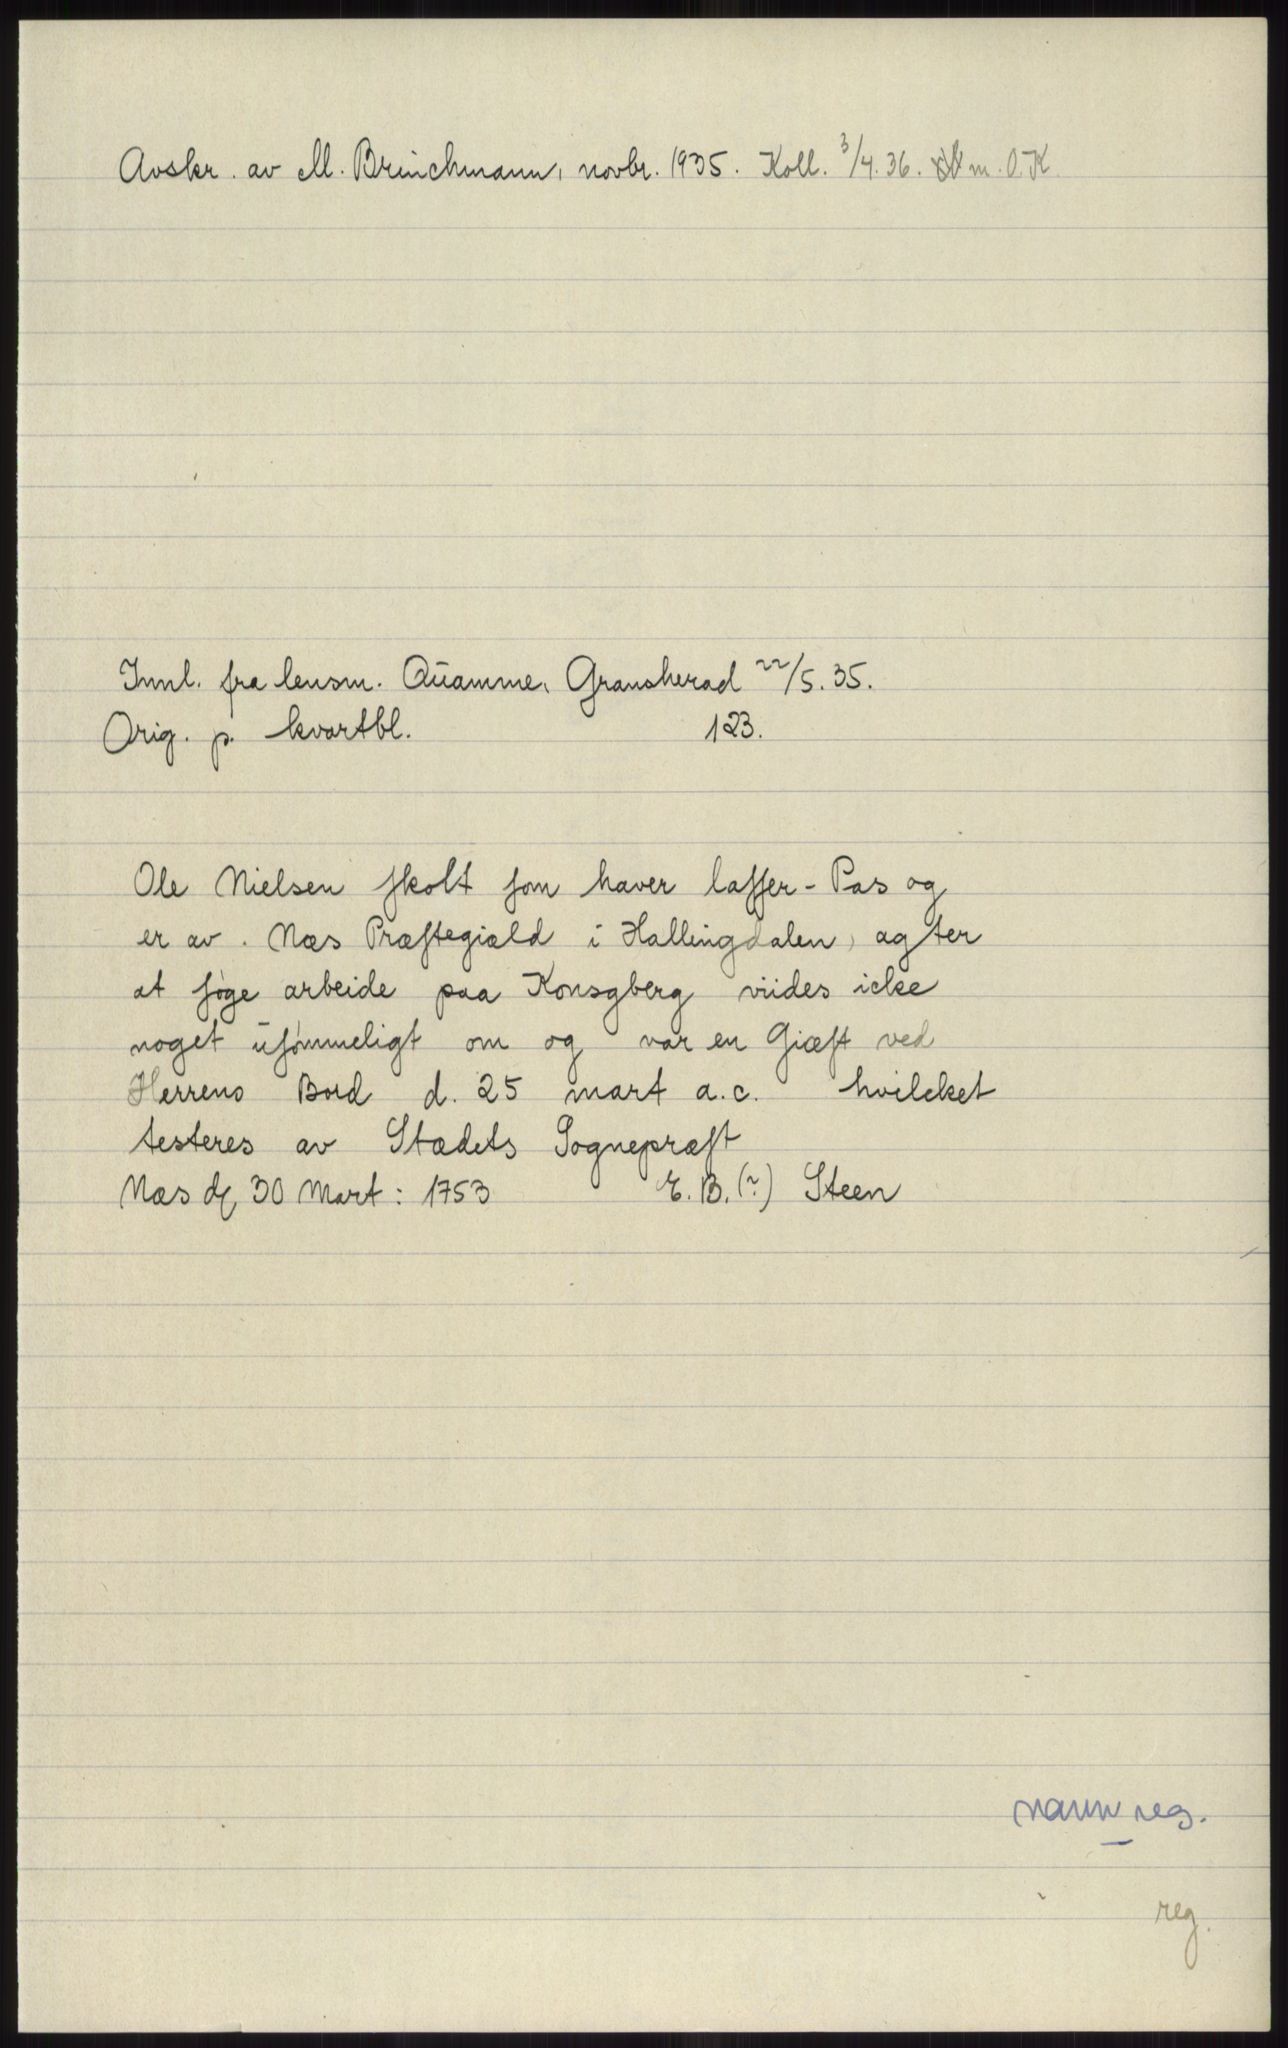 Avskr. av M. Brinchmann, novbr. 1935. Koll. 3/4. 36. m. O.K.
Innl. fra lensm. Qŭamme, Gransherad 22/5. 35.
Orig. p. kvartbl.
123.
Ole Nielsen Skolt som haver lasser-Pas og
er av. Næs Præstegiæld i Hallingdalen, agter
at søge arbeide paa Konsgberg viides icke
noget ŭsømmeligt om og var en Giæst ved
Herrens Bord d. 25 mart a.c. hvilcket
testeres av Stædets Sognepræst
Næs d. 30 Mart: 1753 E. B. (?) Steen
navnreg.
reg.